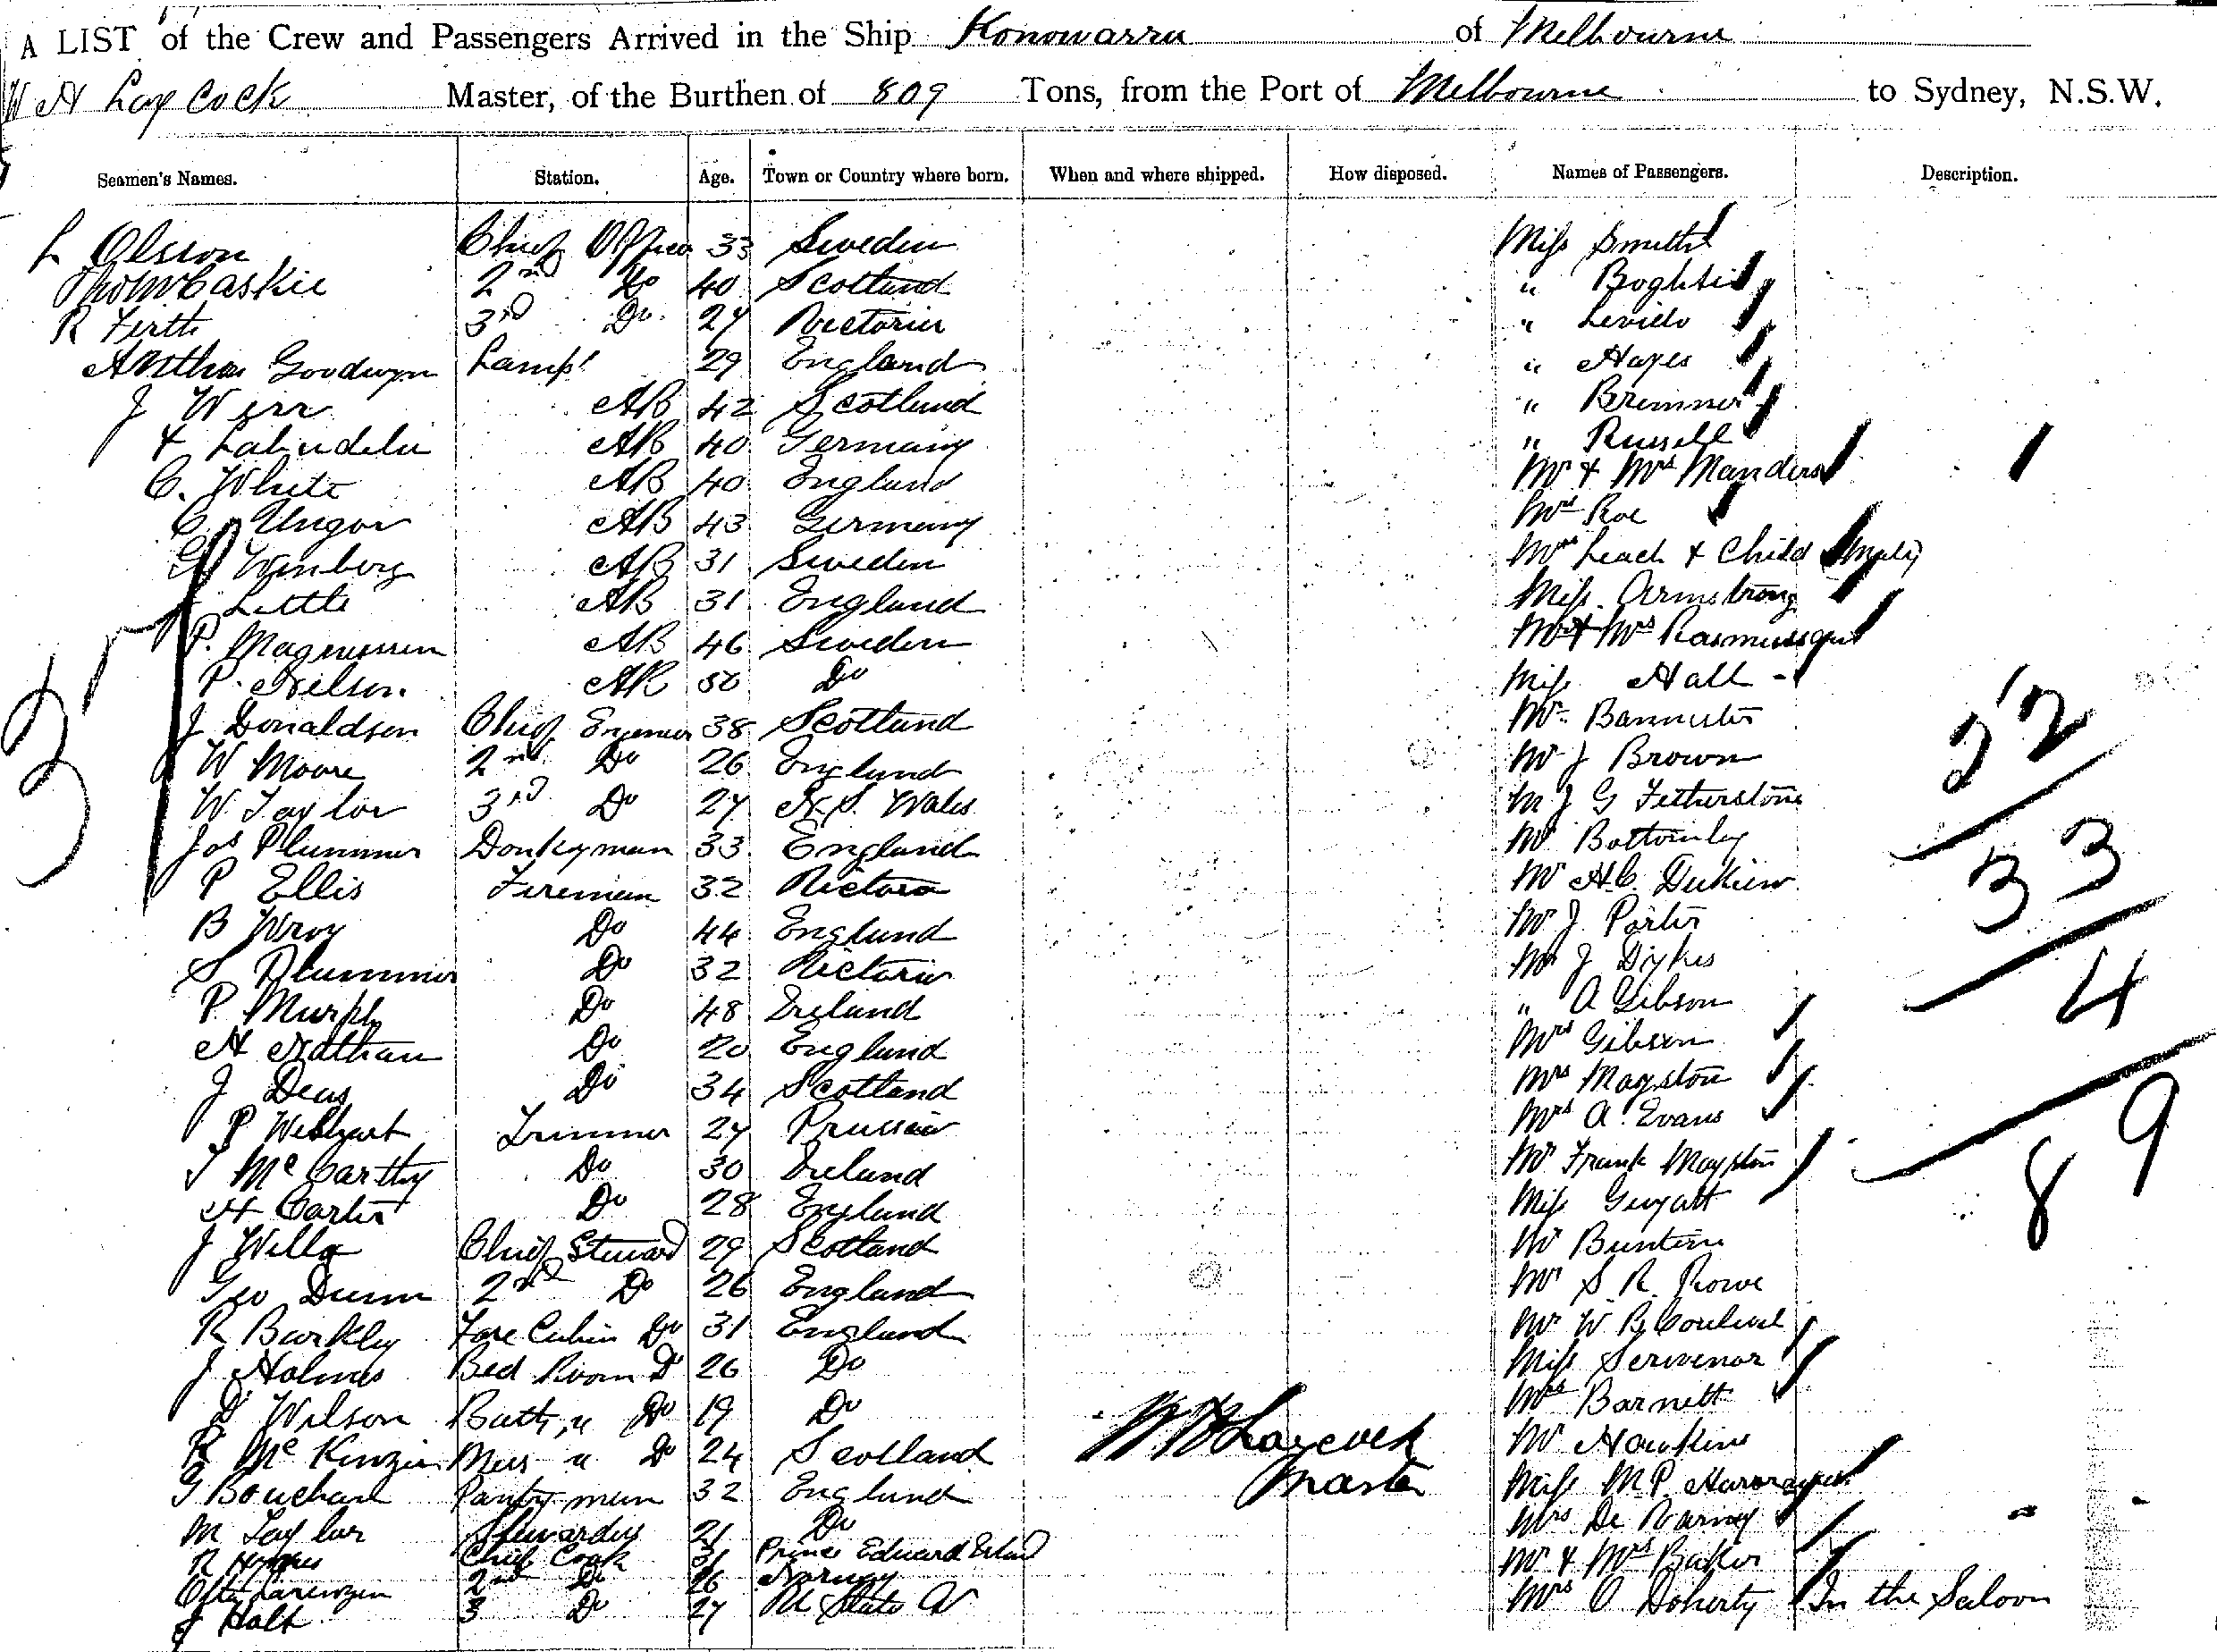 A LIST of the Crew and Passengers Arrived in the Ship Konowarra of Melbourne
W H Laycock Master, of the Burthen of 809 Tons, from the Port of Melbourne to Sydney, N.S.W.
Seamen's Names. Station. Age. Town or Country where born. When and where shipped. How disposed. Names of Passengers. Description.
L Olsson Chief Officer 33 Sweden Miss Smith
Thos McCaskie 2nd Do 40 Scotland " 
R Firth 3rd Do 27 Victoria " Levills
Arthur Goodwyn Lamps 29 England " Hayes
J Weir AB 42 Scotland " Bremner
AB 40 Germany " Russell
C. White AB 40 England Mr & Mrs Manders
C. Ungar AB 43 Germany Mrs Roe
G Winberg AB 31 Sweden Mrs Leach & Child
Little AB 31 England Miss Armstrong
P. Magnussen AB 46 Sweden Mr & Mrs
P. Nelson AB 50 Do Miss Hall
J Donaldson Chief Engineer 38 Scotland Mr Bannister
W Moore 2nd Do 26 England Mr J Brown
W. Taylor 3rd Do 27 N. S. Wales Mr J G Fetherstone
Jos Plummer Donkeyman 33 England Mr Bottomley
P Ellis Fireman 32 Victoria Mr H.C.
B Wroy Do 44 England Mr J. Porter
S Plummer Do 32 Victoria Mr J Dykes
P. Murphy Do 48 Ireland " A Gibson
H Nathan Do 20 England Mrs Gibson
J Deas Do 34 Scotland Mrs Mayston
P Trimmer 27 Prussia Mrs A. Evans
T McCarthy Do 30 Ireland Mr Frank Mayston
H Carter Do 28 England Miss Guyatt
J Wills Chief Steward 29 Scotland Mr Buntine
Geo Dunn 2nd Do 26 England Mr S. R. Rowe
R Barkley Fore Cabin Do 31 England Mr W B
J Holmes Bed Room Do 26 Do Miss Scrivenor
D Wilson Bath " Do 19 Do Mrs Barnett
R McKenzie Mess " Do 24 Scotland Mr Hawkins
G Bouchard Pantry man 32 England Miss M. P.
M Taylor Stewardess 21 Do Mrs De
R Chief Cook 31 Prince Edward Island Mr & Mrs Baker
Otto Lorenzen 2nd Do 26 Norway Mrs O Doherty In the Saloon
J Holt 3 Do 27
W H Laycock
Master
35
52
33
4
89